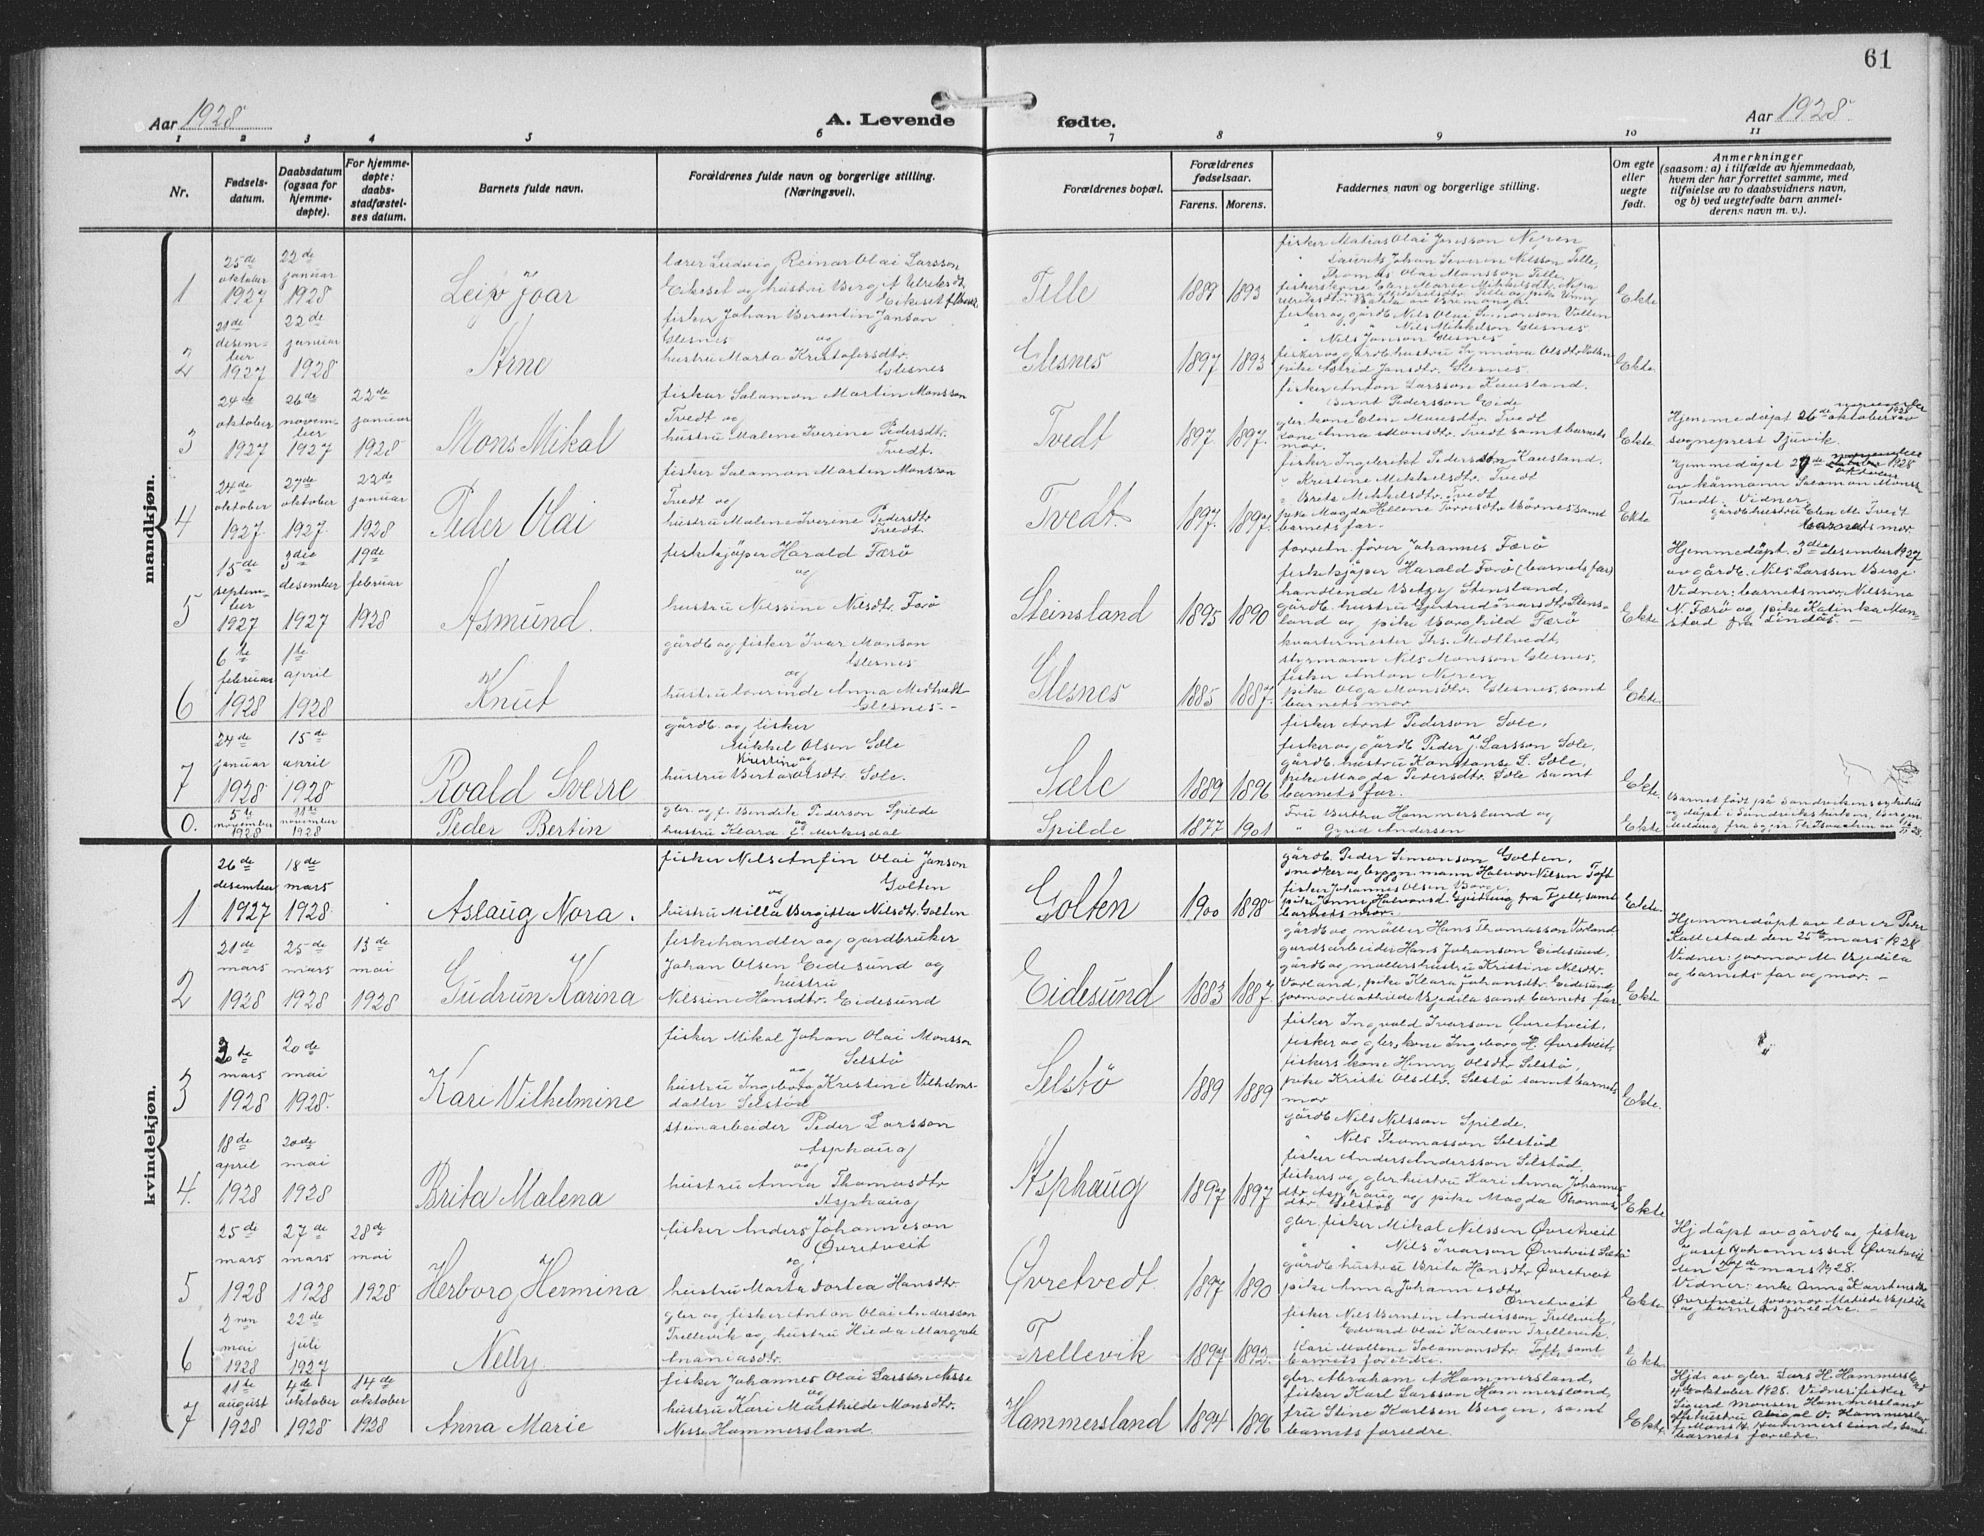 61
Aar 1928 A. Levende fødte. Aar 1928
1 2 3 4 5 6 7 8 9 10 11
Nr.
Fødsels-
datum.
Daabsdatum
(ogsaa for
hjemme-
døpte).
For hjemme-
døpte:
daabs-
stadfæstel-
ses datum.
Barnets fulde navn.
Forældrenes fulde navn og borgerlige stilling.
(Næringsvei).
Forældrenes bopæl.
Forældrenes
fødselsaar.
Farens. Morens.
Faddernes navn og borgerlige stilling.
Om egte
eller
uegte
født.
Anmerkninger
(saasom: a) i tilfælde av hjemmedaab,
hvem der har forrettet samme, med
tilføielse av to daabsvidners navn,
og b) ved uegtefødte barn anmel-
derens navn m. v.).
mandkjøn.
1
25de
oktober
1927
22de
januar
1928
Leiv Joar
lærer Ludvig Reinar Olai Larsson
Eikeset og hustru
Tille
1889 1893
fisker Matias Olai Jonsson Nipen
" Laurits Johan Severin Nilsson Tille,
" Thomas Olai Monsson Tille,
Ekte
2
21de
desem-
ber
1927
22de
januar
1928
Arne
fisker Johan Berentin Janson
Glesnes og
hustru Marta Kristofersdtr.
Glesnes
Glesnes
1897 1893
" Nils Mikkelson Glesnes
" Nils Janson Glesnes
pike Astrid Jansdtr. Glesnes.
Ekte.
3
24de
oktober
1927
26de
novem-
ber
1927
22de
januar
1928
Mons Mikal
fisker Salamon Martin Monsson
Tvedt og
hustru Malene Iverine Pedersdtr.
Tvedt.
Tvedt
1897. 1897.
fisker Anton Larsson Kausland.
" Bernt Pedersson Eide
gbr. kone Elen Monsdtr. Tvedt
kone Anna Monsdtr. Tvedt samt barnets
mor.
Ekte.
Hjemmedøpt 26de
sogneprest Gjuvik.
4
24de
oktober
1927
27de
oktober
1927
22de
januar
1928
Peder Olai
fisker Salamon Marten Monsson
Tvedt og
hustru Malene Iverene Pedersdtr
Tvedt.
Tvedt.
1897. 1897.
fisker Ingebrikt Pederson Kausland.
" Kristine Mikkelsdtr. Tvedt
" Brita Mikkelsdtr. Tvedt
barnets far.
Ekte
Hjemmedøpt 27de
av kårmann Salamon Monss.
Tvedt. Vidner:
gårdb hustru Elen M. Tveit
barnets mor.
5
15de
septem-
ber
1927
3die
desember
1927
19de
februar
1928
Asmund.
fiskekjøper Harald Færø
og
hustru Nilssine Nilsdtr. Færø
Steinsland
1895 1890
forretn. fører Johannes Færø
fiskekjøper Harald Færø (barnets far)
handlende Betzy Stensland,
land og pike Borghild Færø
Ekte.
Hjemmedøpt. 3die desember 1927
av gårdb. Nils Larssen Berge
Vidner: barnets mor Nilssina
N. Færø og pike Katinka Mun-
stad fra Lindås. –
6
6te
februar
1928
1ste
april
1928
Knut
gårdb og fisker Ivar Monson
Glesnes
og
hustru lærerinde Anna Medtvedt
Glesnes –
Glesnes
1885 1887.
kvartermester Ths. Midttvedt
styrmann Nils Monsson Glesnes,
fisker Anton Nipen
pike Olga Monsdtr. Glesnes, samt
barnets mor
Ekte.
7
24de
januar
1928
15de
april
1928
Roald Sverre
gårdb. og fisker
Mikkel Olsen Sæle
og
hustru Berta Kristine Olsdtr. Sæle.
Sæle
1889 1896
fisker Arnt Pederson Sæle,
fisker og gårdb Peder J. Larsson Sæle,
gårdb. hustru Konstanse L. Sæle,
pike Magda Pedersdtr. Sæle samt
barnets far.
Ekte.
0.
5te
november
1928
11te
november
1928
Peder Bertin
gbr. og f. Bendik Pederson Spilde
og
hustru Klara f. Mirkesdal
Spilde
1877 1901
Fru Bertha Hammersland og
" Gyrid Andersen
Ekte
Barnet født på Sandvikens sykehus
og døpt i Sandvikskirken, Bergen.
kvindekjøn.
1
26de
desember
1927
18de
mars
1928
Aslaug Nora.
fisker Nils Anfin Olai Janson
Golten
og
hustru Milla Bergitta Nilsdtr. Golten
Golten
1900 1898
gårdb. Peder Simonson Golten,
snekker og byggm. mann Halvor Nilsen Toft
fisker Johannes Olsen Borge,
barnets mor.
Ekte.
2
21de
mars
1928
25de
mars
1928
13de
mai
1928
Gudrun Karina
fiskehandler og gårdbruker
Johan Olsen Eidesund og
hustru
Nilssine Hansdtr. Eidesund
Eidesund
1883 1887.
gårdb og møller Hans Thomasson Vorland
gårdsarbeider Hans Johanson Eidesund,
gårdb og møllershustru Kristine Nilsdtr.
Vorland, pike Klara Johansdtr. Eidesund,
jormor Mathilde Bjedila samt barnets far
Ekte
Hjemmedøpt av lærer Peder
Kallestad den 25de mars 1928
Vidner: jormor M. Bjedila
og barnets far og mor. –
3
mars
1928
20de
mai
1928.
Kari Vilhelmine
fisker Mikal Johan Olai Monsson
Selstø
og
hustru Ingeborg Kristine Vilhelms-
datter Selstød
Selstø
1889 1889
fisker Ingvald Ivarson Øvretveit,
fisker og gbr, kone Ingeborg H. Øvretveit,
fiskers kone Hinny Olsdtr Selstø,
pike Kristi Olsdtr. Selstø samt barnets
mor
Ekte.
4.
18de
april
1928
20de
mai
1928
Brita Malena
stenarbeider Peder Larsson
Asphaug
og
hustru Anna Thomasdtr
Asphaug
Asphaug
1897 1897
gårdb Nils Nilsson Spilde,
" Nils Thomasson Selstød
fisker Anders Andersson Selstød,
fiskers og gbr hustru Kari Anna Johannes-
dtr. Asphaug og pike Magda Thomas-
dtr. Selstø
Ekte
5
25de
mars
1928
27de
mars
1928
28de
mai
1928
Herborg Hermina
fisker Anders Johanneson
Øvretveit
og
hustru Marta Dortea Hansdtr.
Øvretvedt.
1897 1890
gbr, fisker Mikal Nilssen Øvretveit
" " Nils Ivarson Øvretveit Selstø
gårdb hustru Brita Hansdtr Øvretveit
pike Anna Johannesdtr.
Øvretveit
Ekte.
Hj døpt av gårdb og fisker
Josef Johannessen Øvretveit
den 27de mars 1928.
Vidner: enke Anna Karstensdtr
Øvretveit, jormor Matilde Bjedila
og barnets foreldre. –
6
2nen
mai
1928
22de
juli
1927
Nelly.
gbr og fisker Anton Olai Andersson
Trellevik og hustru Hilda Margrete
Ananiasdtr.
Trellevik
1897 1892.
fisker Nils Berntin Andersson Trellevik,
" Edvard Olai Karlson Trellevik,
Kari Mallene Salamonsdtr Toft, samt
barnets foreldre.
Ekte.
7
11te
august
1928
4de
oktober
1928
14de
oktober
1928
Anna Marie
fisker Johannes Olai Larssen Nesse
og
hustru Kari Marthilde Monsdtr.
Nesse Hammersland.
Hammersland
1894 1896
gbr. Abraham A Hammersland,
fisker Karl Larsson Hammersland,
fru Stine Karlsen Bergen, samt
barnets foreldre.
Ekte.
Hjd. av gbr. Lars H. Hammersland
4de oktober 1928. Vidner: fisker
Sigurd Monsen Hammersland
barnets foreldre.